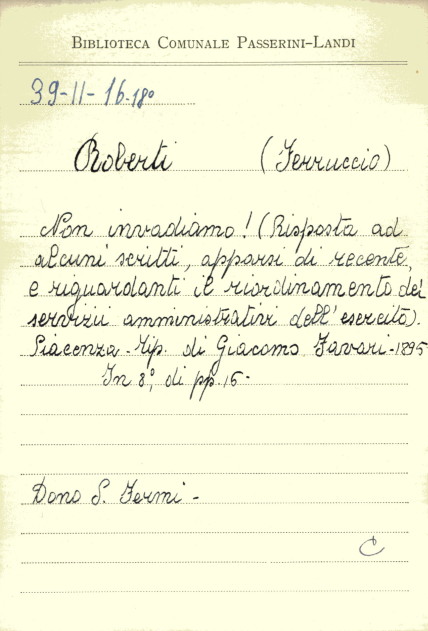 BIBLIOTECA COMUNALE PASSERINI-LANDI
39-II-16.18º
Roberti (Ferruccio)
Non invadiamo! (Risposta ad
alcuni scritti, apparsi di recente,
e riguardanti il riordinamento dei
servizii amministrativi dell'esercito).
Piacenza - Tip. di Giacomo Favari - 1895
In 8º, di pp. 15 -
Dono S. Fermi -
C